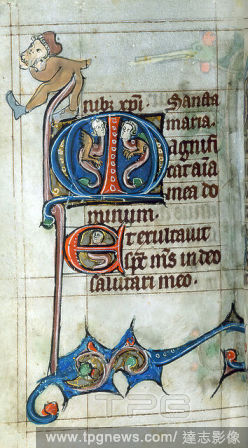 xpi. Sancta
maria.
Magnifi
cat aia
mea do
minum.
Et exultauit
sps ms in deo
salutari meo.
TPG
www.tpgnews.com / 達志影像